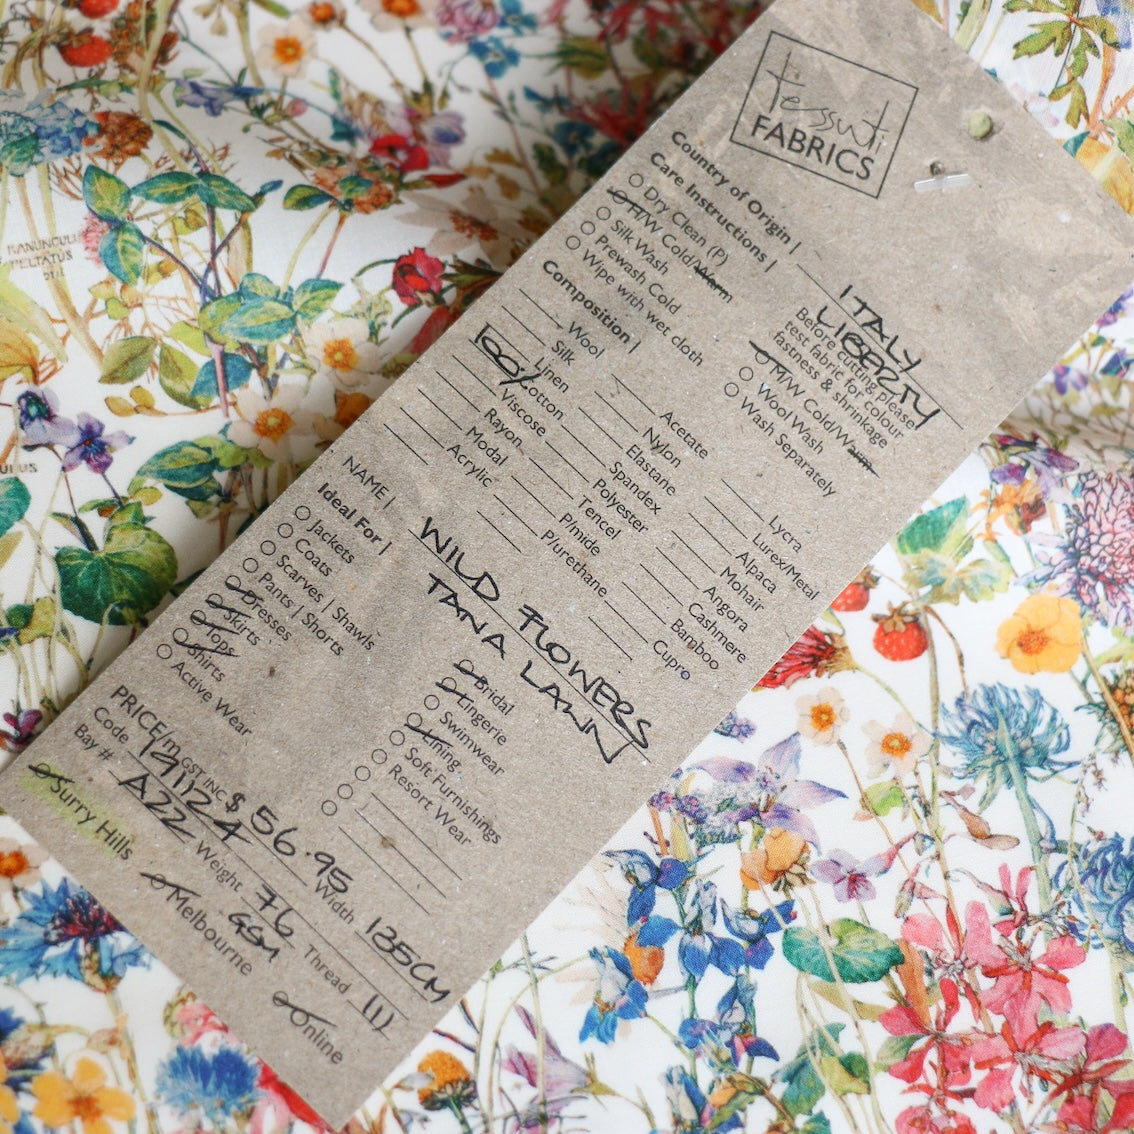 tessuti
FABRICS
Country of Origin | ITALY
LIBERTY
Care Instructions |
Before cutting please
test fabric for colour
fastness & shrinkage
Dry Clean (P)
H/W Cold/Warm
Silk Wash
Prewash Cold
Wipe with wet cloth
M/W Cold/Warm
Wool Wash
Wash Separately
Composition |
Wool
Silk
Linen
100% Cotton
Viscose
Rayon
Modal
Acrylic
Acetate
Nylon
Elastane
Spandex
Polyester
Tencel
P/mide
P/urethane
Lycra
Lurex/Metal
Alpaca
Mohair
Angora
Cashmere
Bamboo
Cupro
NAME | WILD FLOWERS
TANA LAWN
Ideal For |
Jackets
Coats
Scarves | Shawls
Pants | Shorts
Dresses
Skirts
Tops
Shirts
Active Wear
Bridal
Lingerie
Swimwear
Lining
Soft Furnishings
Resort Wear
PRICE/m GST INC $56.95
Code 191124 Width 135CM
Bay # A22 Weight 76 GSM Thread 111
Surry Hills
Melbourne
Online
RANUNCULU
PELTATUS